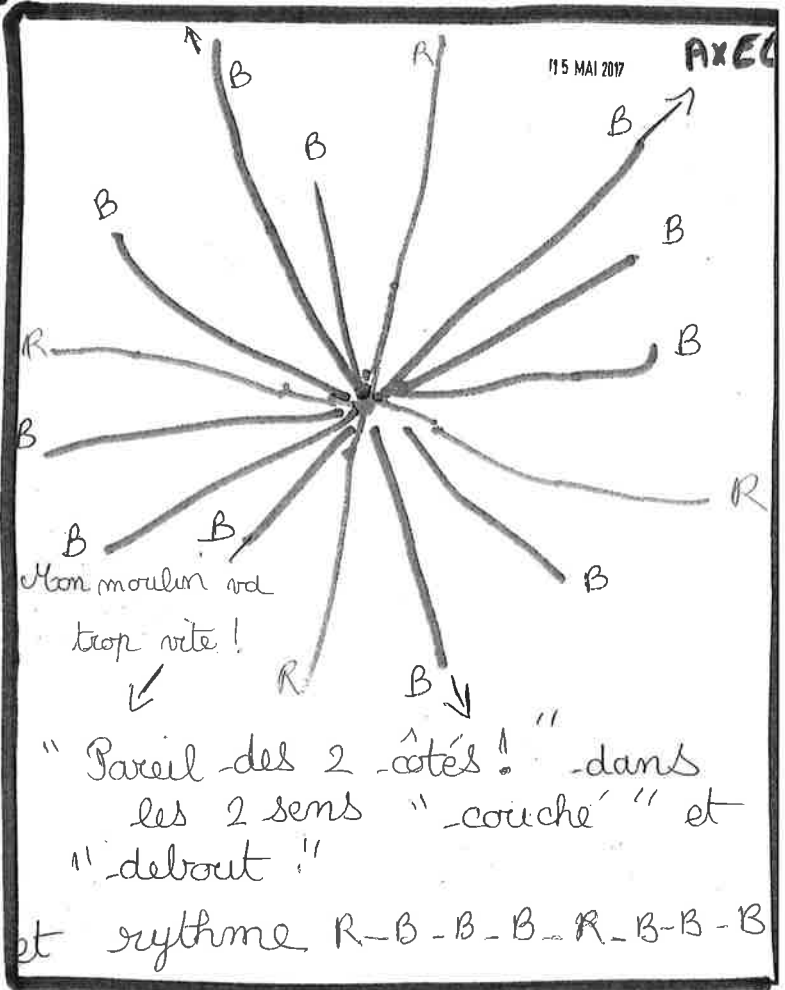 15 MAI 2017
AXEL
B
R
B
B
B
B
R
B
B
R
B
B
B
B
R
B
Mon moulin va
trop vite !
" Pareil des 2 côtés ! " dans
les 2 sens " couché " et
" debout "
et rythme R-B-B-B-R-B-B-B